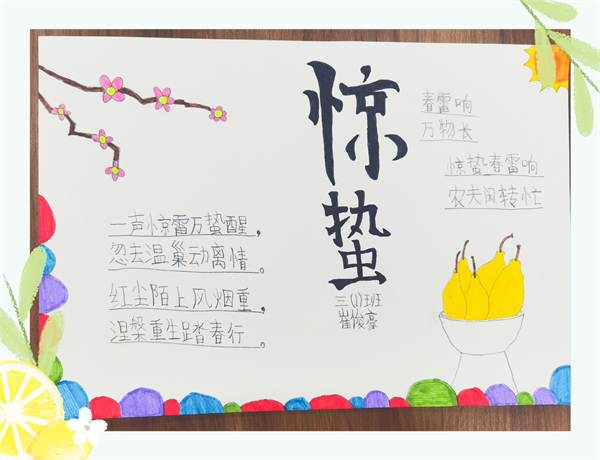 惊
蛰
三(1)班
崔俊豪
春雷响
万物长
惊蛰春雷响
农夫闲转忙
一声惊雷万蛰醒，
忽去温巢动离情。
红尘陌上风烟重，
涅槃重生踏春行。